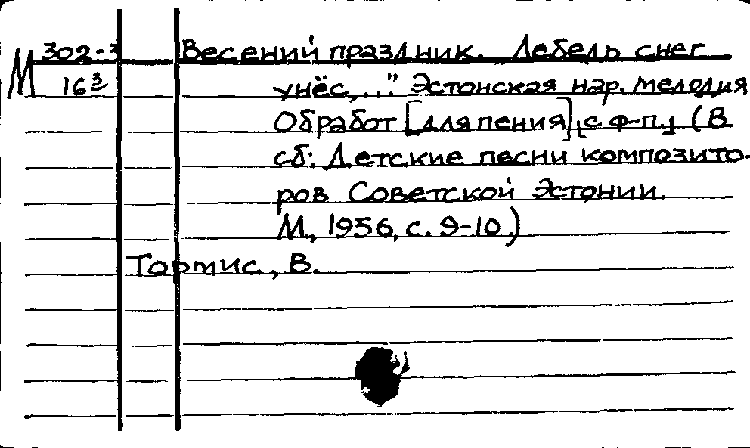 М 302-3 Весений праздник. „Лебедь снег
16³ унёс,..." Эстонская нар. мелодия
Обработ [для пения], с ф-п., (В
сб: Детские песни композито-
ров Советской Эстонии.
М., 1956, с. 9-10.)
Тормис, В.